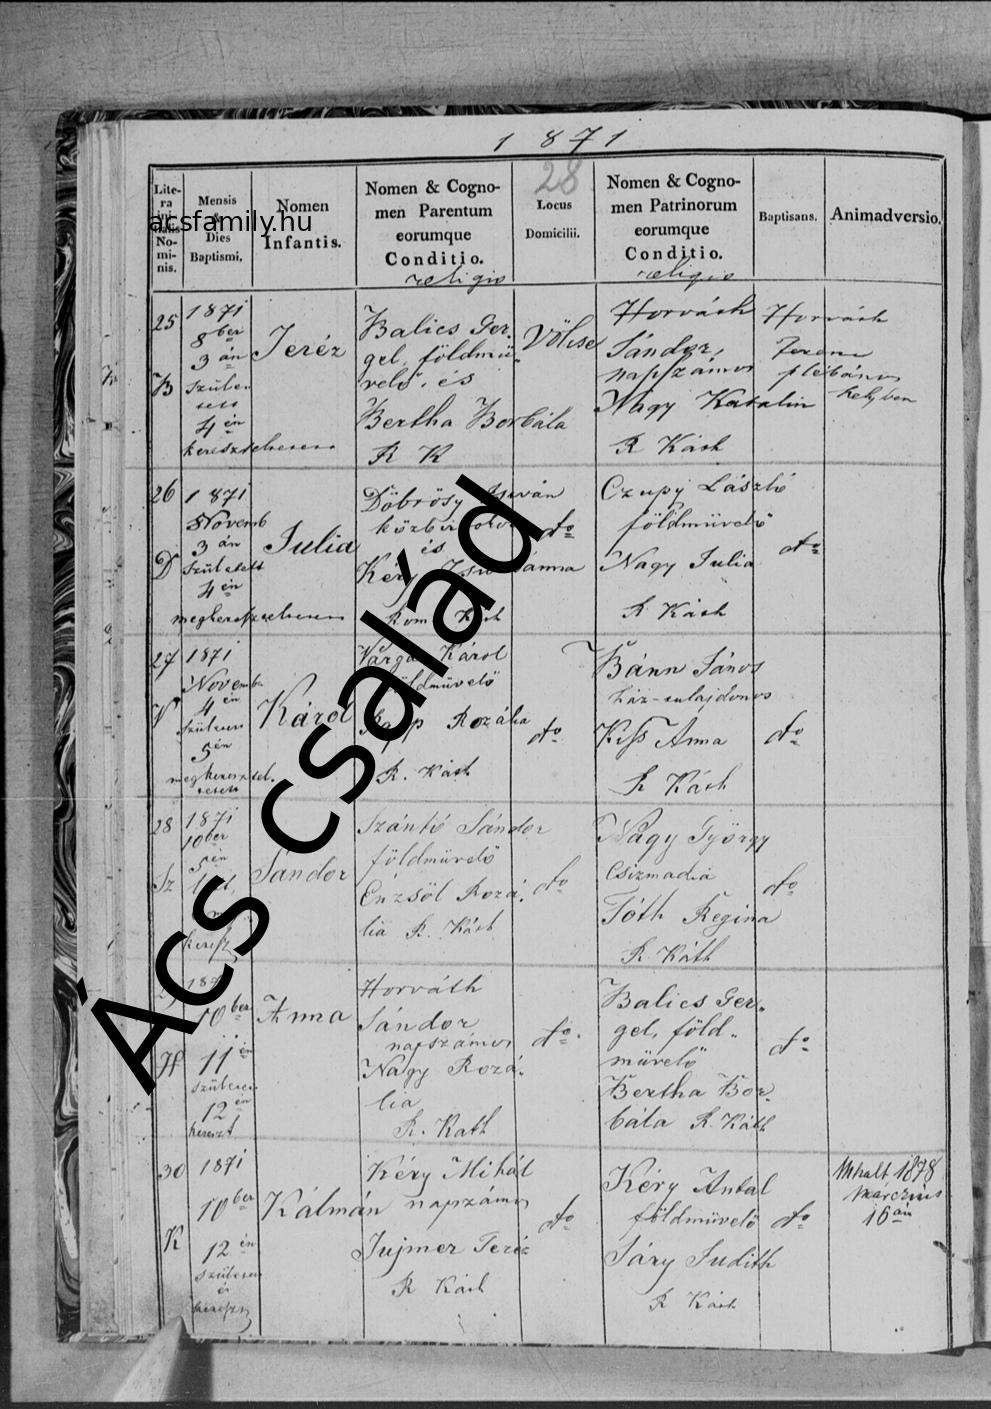 1871
28
Lite-
ra
Initialis
No-
mi-
nis.
Mensis
&
Dies
Baptismi.
Nomen
Infantis.
Nomen & Cogno-
men Parentum
eorumque
Conditio.
religio
Locus
Domicilii.
Nomen & Cogno-
men Patrinorum
eorumque
Conditio.
religio
Baptisans.
Animadversio.
acsfamily.hu
Ács család
25
B
1871
8ber
3 án
4 én
Teréz
Balics Ger-
gel, földmü-
velő, és
Bertha Borbála
R K
Völcse
Horváth
Sándor,
napszámos
Nagy Katalin
R Kath
Horváth
Ferenc
plébános
helyben
26
D
1871
Novemb
3 án
született
4 én
Julia
Döbrösy István
és
Kéry
Rom Kath
do
Czupy László
földmüvelő
Nagy Julia
R Kath
do
27
V
1871
Novemb
4 én
5 én
Károl
Varga Károl
földmüvelő
Papp Rozália
R. Kath
do
Bánn János
ház-tulajdonos
Kiss Anna
R Kath
do
28
Sz
1871
10ber
5 én
Sándor
Szántó Sándor
földmüvelő
Énzsöl Rozá-
lia R. Kath
do
Nagy György
Csizmadia
Tóth Regina
R Káth
do
H
10ber
11 én
12 én
kereszt
Anna
Horváth
Sándor
napszámos
Nagy Rozá-
lia
R. Kath
do
Balics Ger-
gel, föld-
müvelő
Bertha Bor-
bála R. Káth
do
30
K
1871
10ber
12 én
és
Kálmán
Kéry Mihál
napszámos
Teréz
R Kath
do
Kéry Antal
földmüvelő
Sáry Judith
R Kath
do
Mhalt 1878
Márczius
16 án